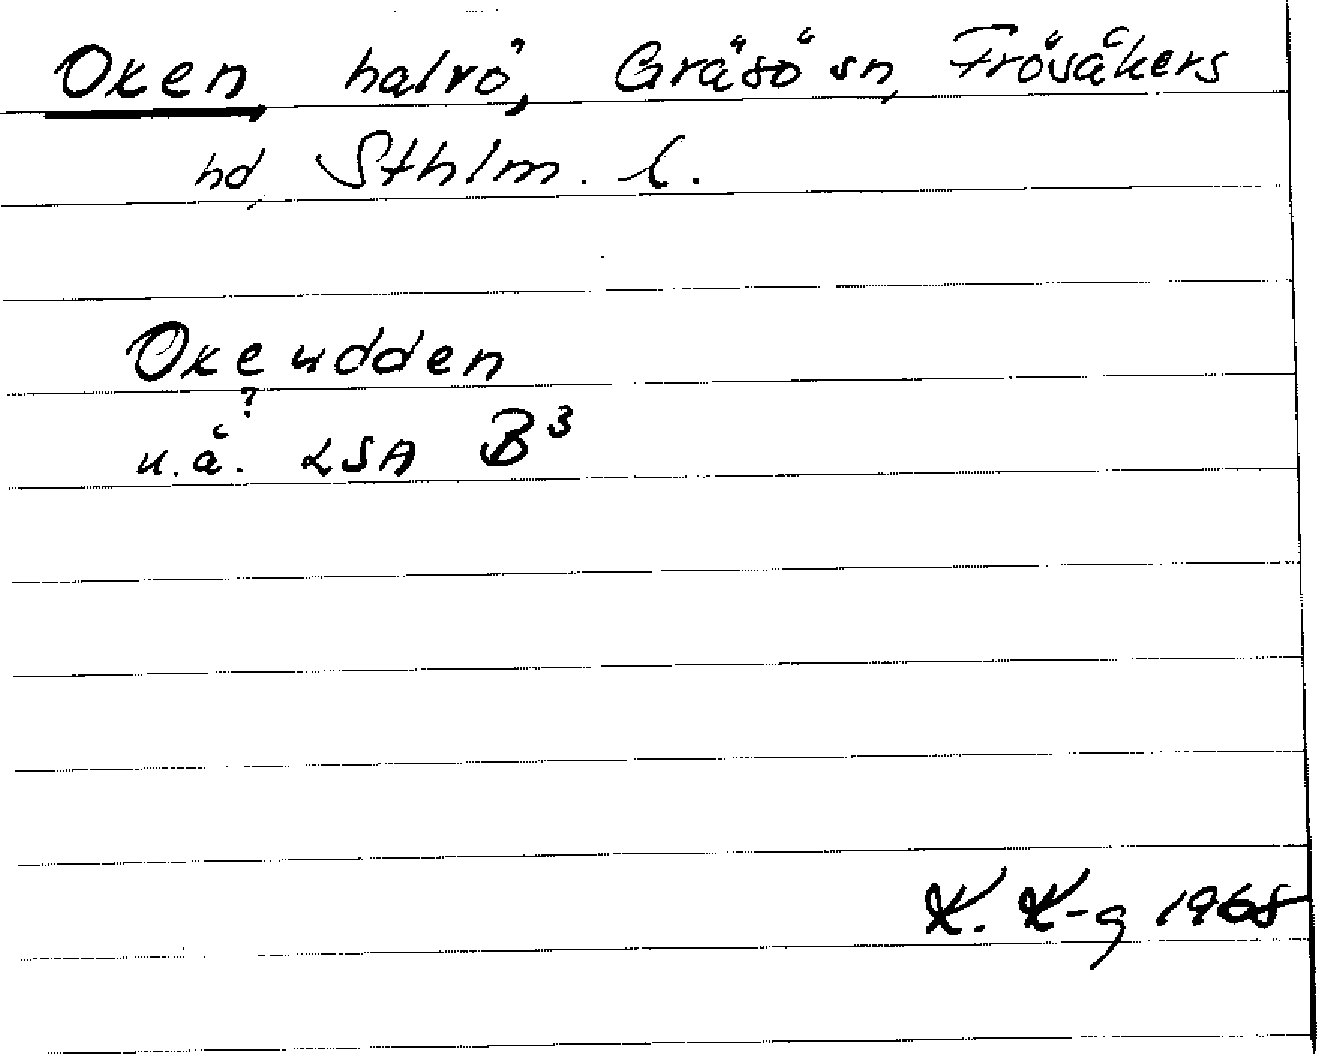 Oken, halvö, Gräsö sn, Frösåkers
hd, Sthlm. l.
Oke udden
?
u.å. LSA B³
K. K-g 1968